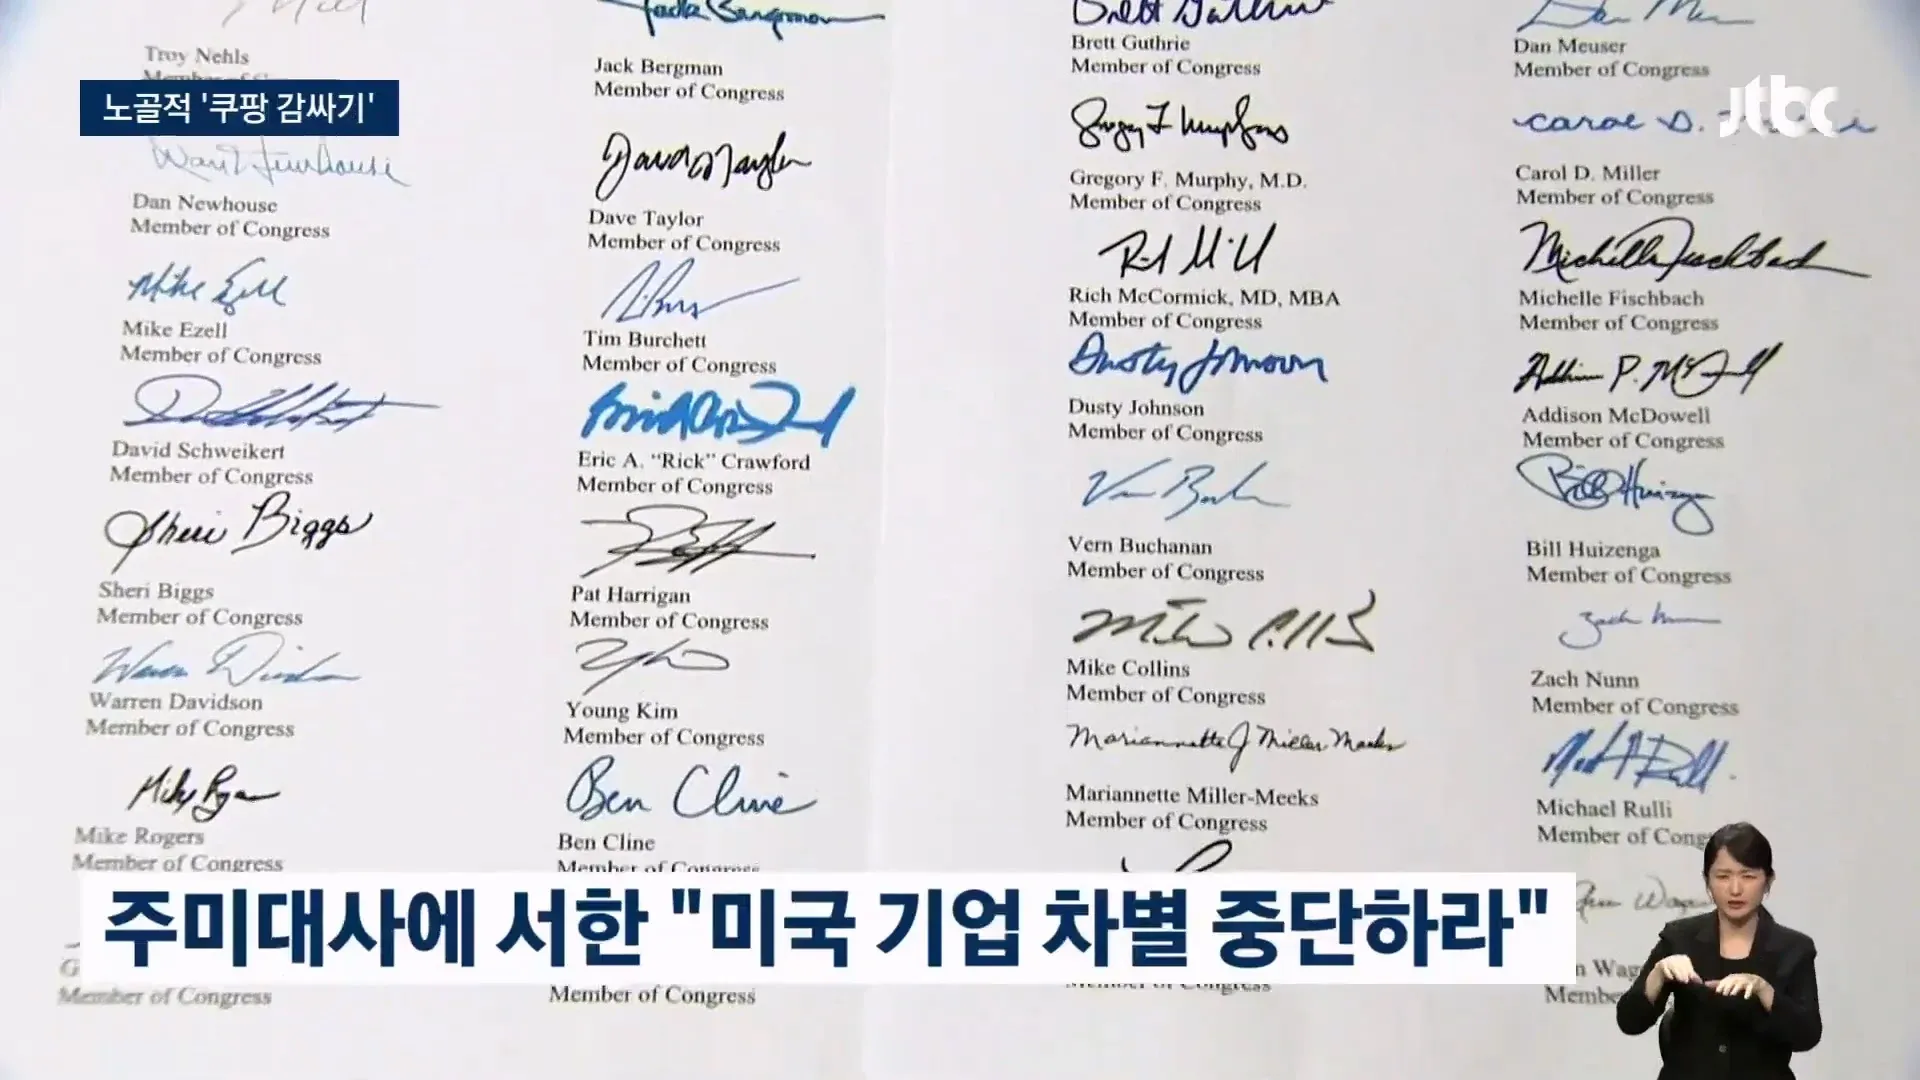 노골적 '쿠팡 감싸기'
jtbc
Troy Nehls
Dan Newhouse
Member of Congress
Mike Ezell
Mike Ezell
Member of Congress
David Schweikert
Member of Congress
Sheri Biggs
Sheri Biggs
Member of Congress
Warren Davidson
Member of Congress
Mike Rogers
Member of Congress
Member of Congress
Jack Bergman
Member of Congress
Dave Taylor
Member of Congress
Tim Burchett
Member of Congress
Eric A. “Rick” Crawford
Member of Congress
Pat Harrigan
Member of Congress
Young Kim
Member of Congress
Ben Cline
Ben Cline
Member of Congress
Member of Congress
Brett Guthrie
Member of Congress
Gregory F. Murphy, M.D.
Member of Congress
Rich McCormick, MD, MBA
Member of Congress
Dusty Johnson
Dusty Johnson
Member of Congress
Vern Buchanan
Member of Congress
Mike Collins
Member of Congress
Mariannette J Miller-Meeks
Mariannette Miller-Meeks
Member of Congress
Dan Meuser
Member of Congress
Carol D.
Carol D. Miller
Member of Congress
Michelle Fischbach
Michelle Fischbach
Member of Congress
Addison McDowell
Member of Congress
Bill Huizenga
Bill Huizenga
Member of Congress
Zach Nunn
Member of Congress
Michael Rulli
Member of
주미대사에 서한 "미국 기업 차별 중단하라"